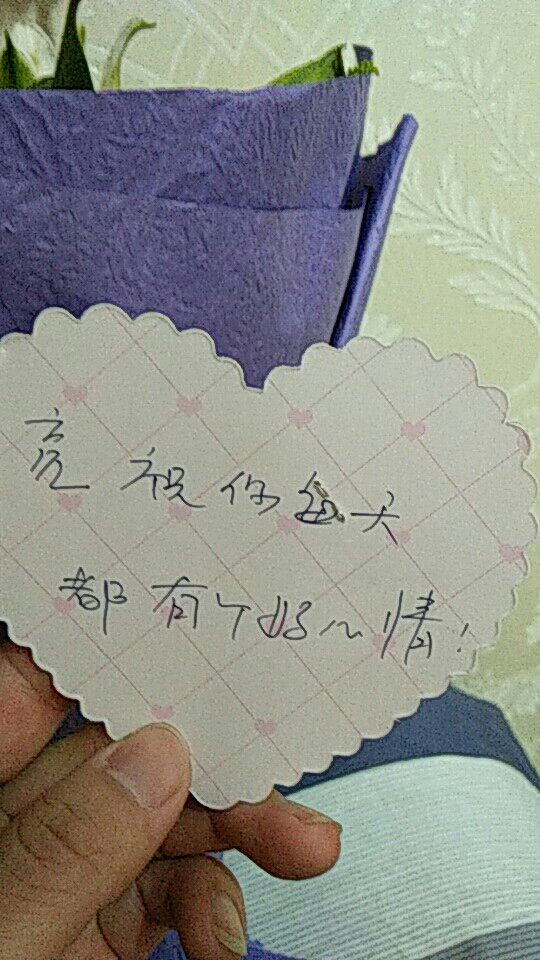 亮 祝你每天
都有个好心情!